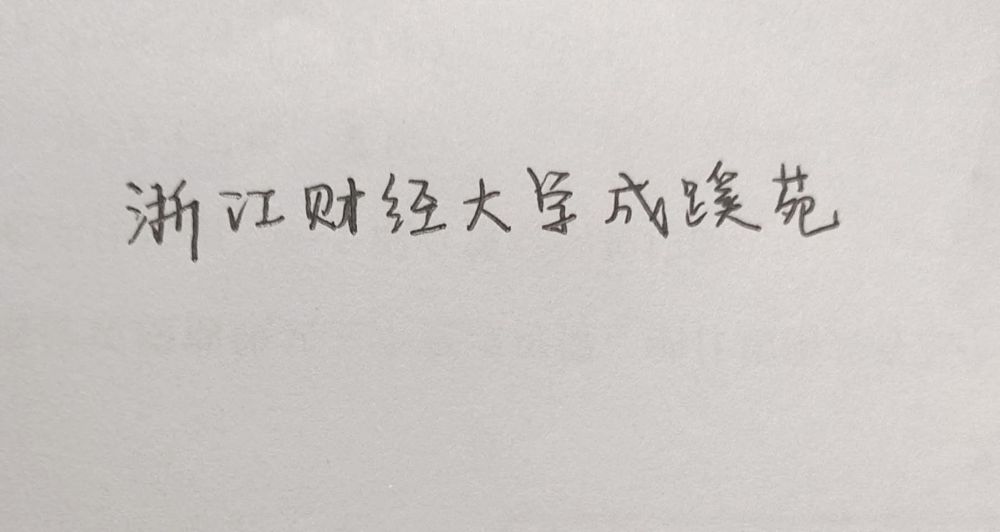 浙江财经大学成蹊苑